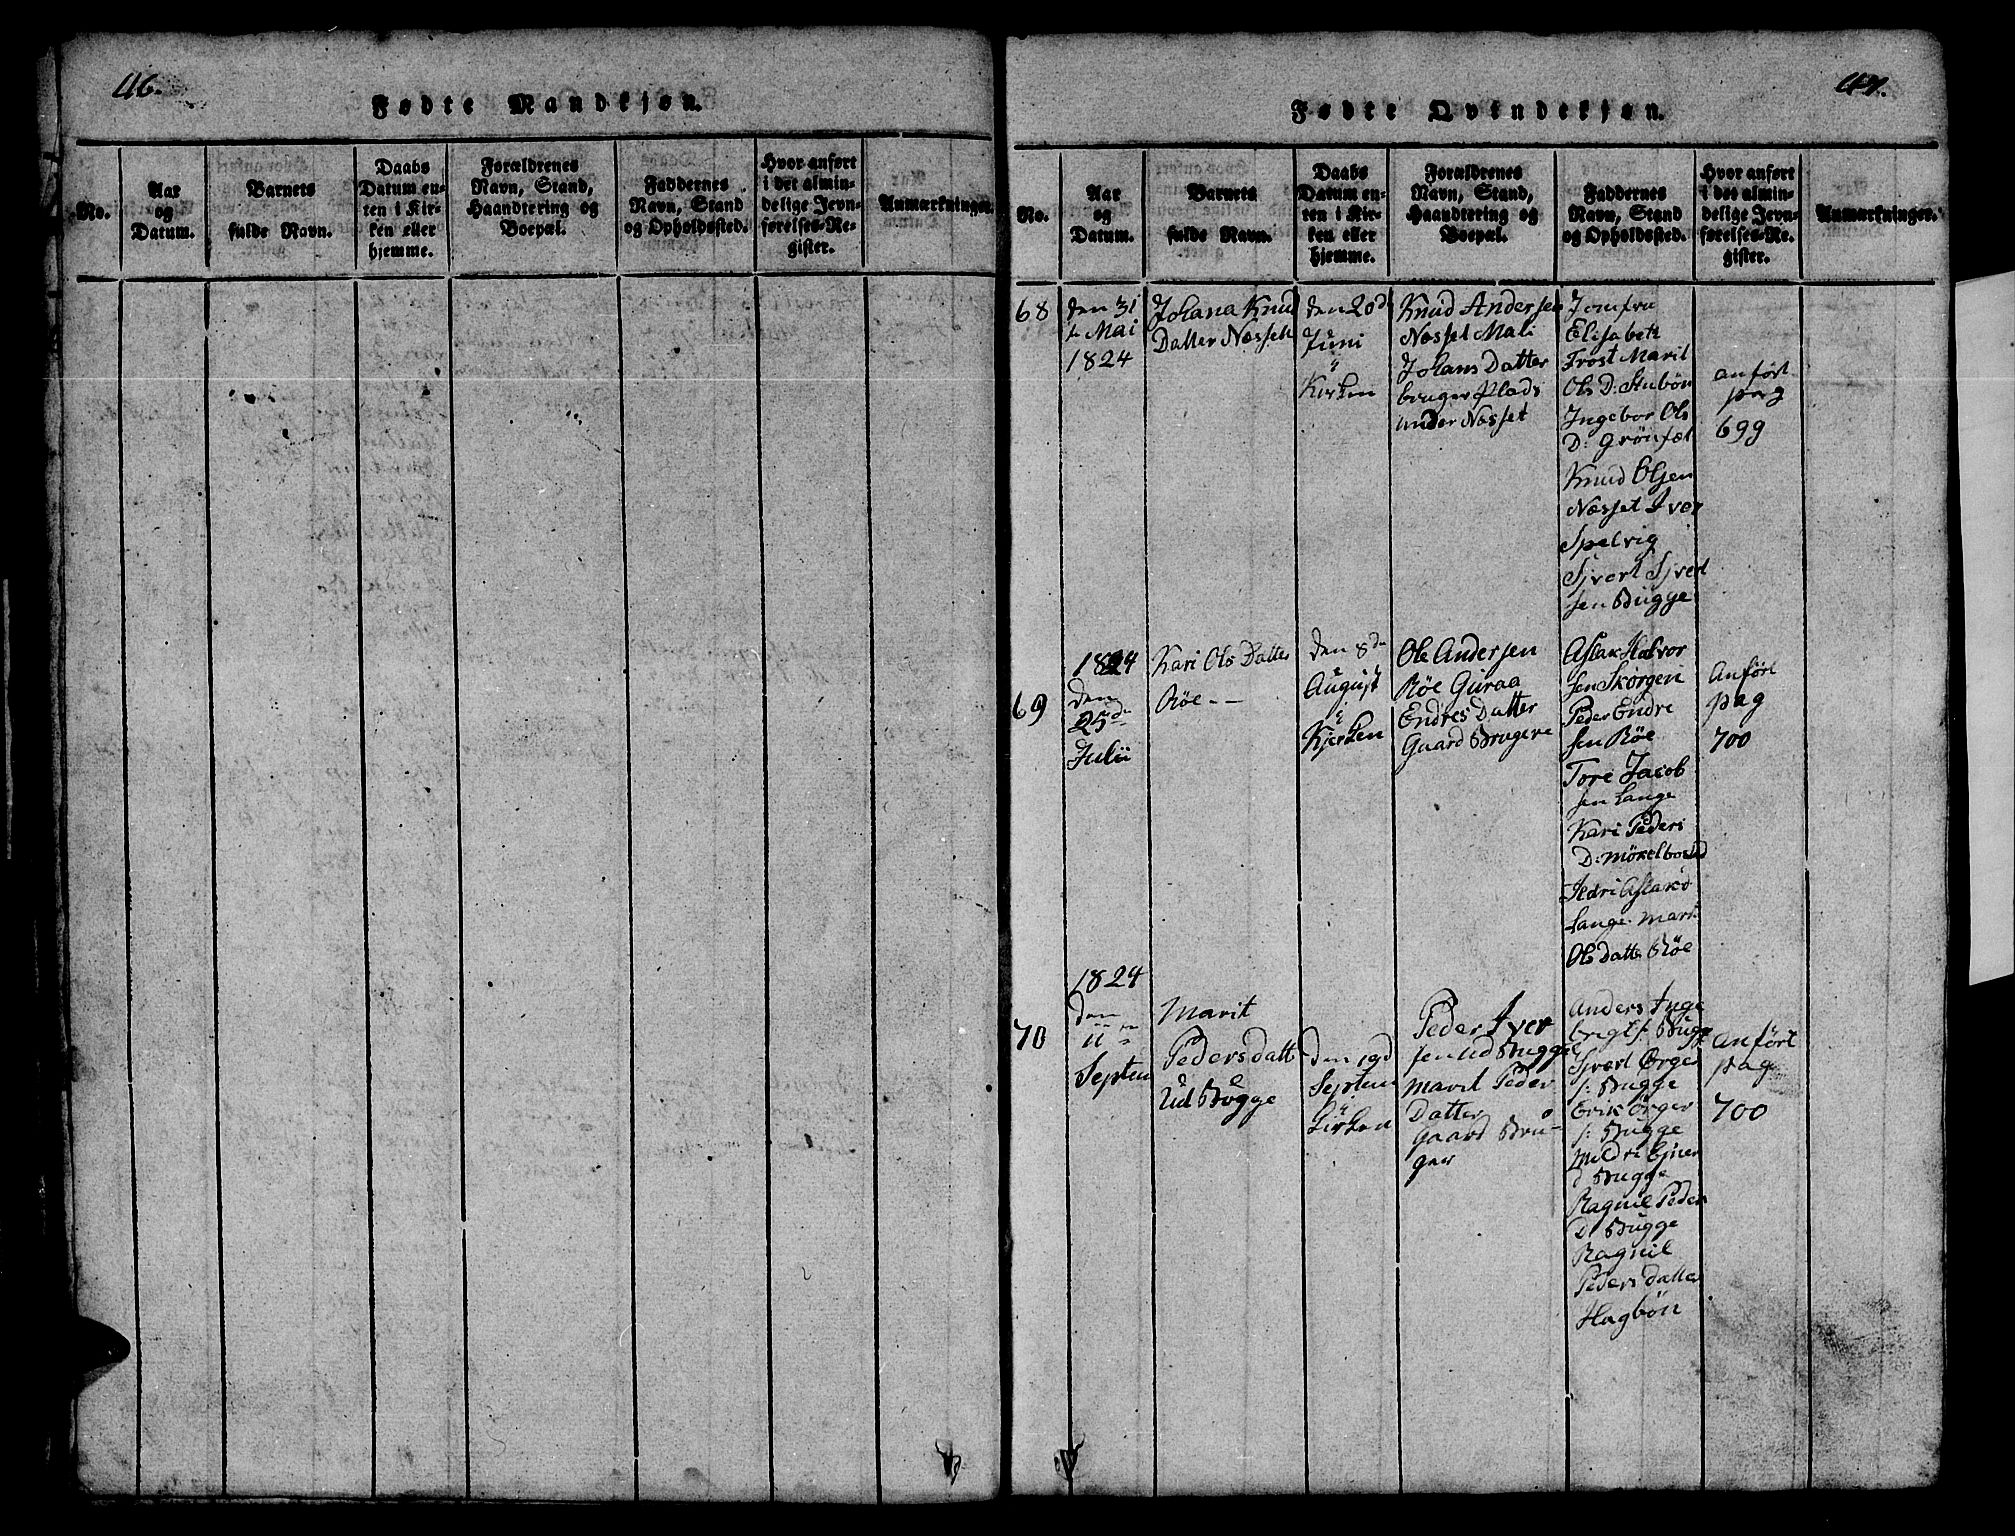 46.
Fødte Mandkjøn.
No.
Aar
og
Datum.
Barnets
fulde Navn.
Daabs
Datum en-
ten i Kir-
ken eller
hjemme.
Forældrenes
Navn, Stand,
Haandtering og
Boepæl.
Faddernes
Navn, Stand
og Opholdssted.
Hvor anført
i det almin-
delige Jevn-
førelses-Re-
gister.
Anmærkninger.
47.
Fødte Qvindekjøn.
No.
Aar
og
Datum.
Barnets
fulde Navn.
Daabs
Datum en-
ten i Kir-
ken eller
hjemme.
Forældrenes
Navn, Stand,
Haandtering og
Boepæl.
Faddernes
Navn, Stand
og Opholdssted.
Hvor anført
i det almin-
delige Jevn-
førelses-Re-
gister.
Anmærkninger.
68
den 31
Mai
1824
Johana Knud
Datter Næsset
den 20d
Juni
i
Kirken
Knud Andersen
Næsset Mali
Johans Datter
bruger Plads
under Næsset
Jomfru
Elisabeth
Frost Marit
Ols D: Stubøn
Ingebor Ols
D: Grönfæl
Knud Olsen
Næsset Iver
Spelvig
Sjvert Sjvert
sen Bugge
anført
pag
699
69
1824
den
25de
Julii
Kari Ols Datter
Röe - -
den 8de
August
i
Kjerken
Ole Andersen
Röe Guraa
Endres Datter
Gaard Brugere
Aslak Halvor
sen Skorgen
Peder Endre
sen Röe
Tore Jacob
sen Lange
Kari Peders
D: Mökelbostad
Sidri Aslaks
Lange Mari
Ols datte Röe
Anført
pag
700
70
1824
den
11te
Septem
Marit
Pedersdatt
Ud Bugge
den 19d
Septem
i
Kirken
Peder Iver
sen Ud Bugge
Marit Peder
Datter
Gaard Bru-
ger
Anders Inge
brigts: Bugge
Sjvert Örger
s: Bugge
Erik Örger
s: Bugge
Mildri Ejner
d Bugge
Ragnil Peder
D: Bugge
Ragnil
Peders datter
Hagbön
anført
pag
700